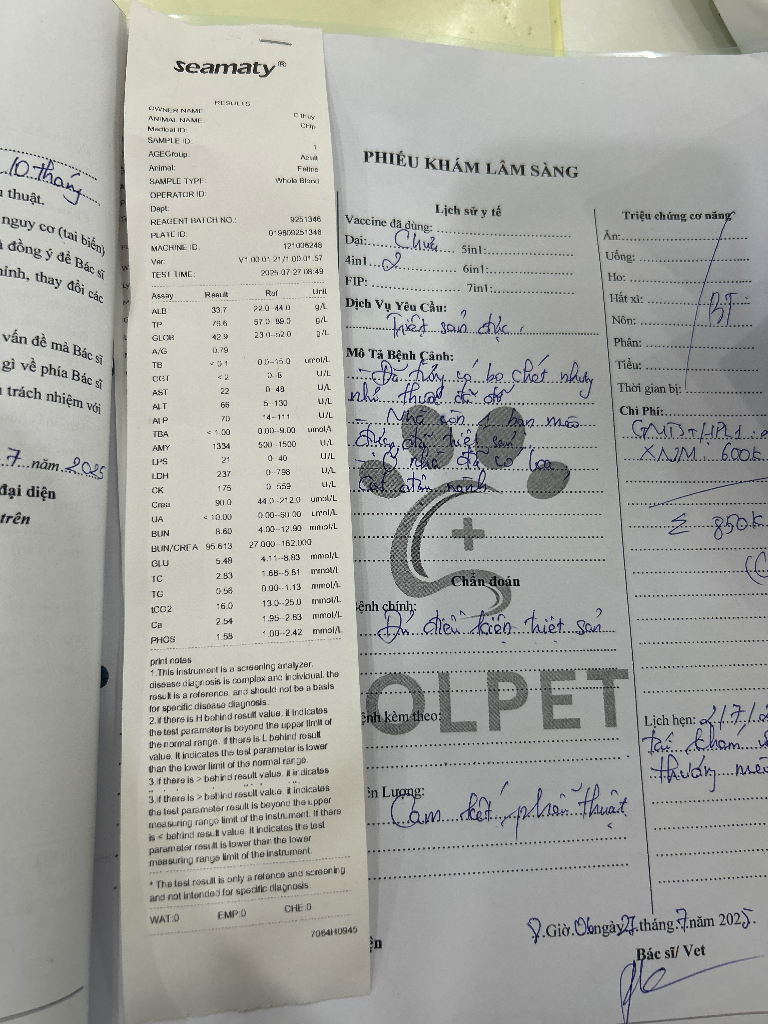 10 tháng
thuật.
nguy cơ (tai biến)
đồng ý để Bác sĩ
thay đổi các
vấn đề mà Bác sĩ
gì về phía Bác sĩ
trách nhiệm với
7 năm 2025
đại diện
trên
seamaty®
RESULTS
OWNER NAME:
ANIMAL NAME: C thuy
Medical ID: CHip
SAMPLE ID: 1
AGEGroup: Adult
Animal: Feline
SAMPLE TYPE: Whole Blood
OPERATOR ID:
Dept:
REAGENT BATCH NO.: 9251346
PLATE ID: 019809251348
MACHINE ID: 121006248
Ver: V1.00.01.21/1.00.01.57
TEST TIME: 2025-07-27 08:49
Assay Result Ref Unit
ALB 33.7 22.0--44.0 g/L
TP 76.6 57.0--89.0 g/L
GLOB 42.9 23.0--52.0 g/L
A/G 0.79
TB < 0.1 0.0--15.0 umol/L
GGT < 2 0--8 U/L
AST 22 0--48 U/L
ALT 66 5--130 U/L
ALP 70 14--111 U/L
TBA < 1.00 0.00--9.00 umol/L
AMY 1334 500--1500 U/L
LPS 21 0--40 U/L
LDH 237 0--798 U/L
CK 175 0--559 U/L
Crea 90.0 44.0--212.0 umol/L
UA < 10.00 0.00--60.00 umol/L
BUN 8.60 4.00--12.90 mmol/L
BUN/CREA 95.613 27.000--162.000
GLU 5.48 4.11--8.83 mmol/L
TC 2.83 1.68--5.81 mmol/L
TG 0.56 0.00--1.13 mmol/L
tCO2 16.0 13.0--25.0 mmol/L
Ca 2.54 1.95--2.83 mmol/L
PHOS 1.55 1.00--2.42 mmol/L
print notes
1.This instrument is a screening analyzer.
disease diagnosis is complex and individual. the
result is a reference, and should not be a basis
for specific disease diagnosis.
2.if there is H behind result value. it indicates
the test parameter is beyond the upper limit of
the normal range. if there is L behind result
value. It indicates the test parameter is lower
than the lower limit of the normal range.
3.if there is > behind result value. it indicates
3.if there is > behind result value. it indicates
the test parameter result is beyond the upper
measuring range limit of the instrument. If there
is < behind result value. it indicates the test
parameter result is lower than the lower
measuring range limit of the instrument.
* The test result is only a refence and screening
and not intended for specific diagnosis.
WAT:0 EMP:0 CHE:0
7064H0945
PHIẾU KHÁM LÂM SÀNG
Lịch sử y tế
Vaccine đã dùng:
Dại: Chưa 5in1:
4in1 2 6in1:
FIP: 7in1:
Dịch Vụ Yêu Cầu:
Triệt sản đực.
Mô Tả Bệnh Cảnh:
- Đã thấy có bọ chét nhưng
nhỏ thuốc đã đỡ
- Nhà còn 1 bạn mèo
được chỉ triệt sản
- Ở nhà đã có loa
Chẩn đoán
Bệnh chính:
Đủ điều kiện triệt sản
OLPET
kèm theo:
Lượng:
Cam kết phẫu thuật
Triệu chứng cơ năng
Ăn:
Uống:
Ho:
Hắt xì: BT
Nôn:
Phân:
Tiểu:
Thời gian bị:
Chi Phí:
XNM: 600k
Σ 850k
Lịch hẹn: 2/7/
tái khám
8.Giờ.06ngày27.tháng.7.năm 2025.
Bác sĩ/ Vet